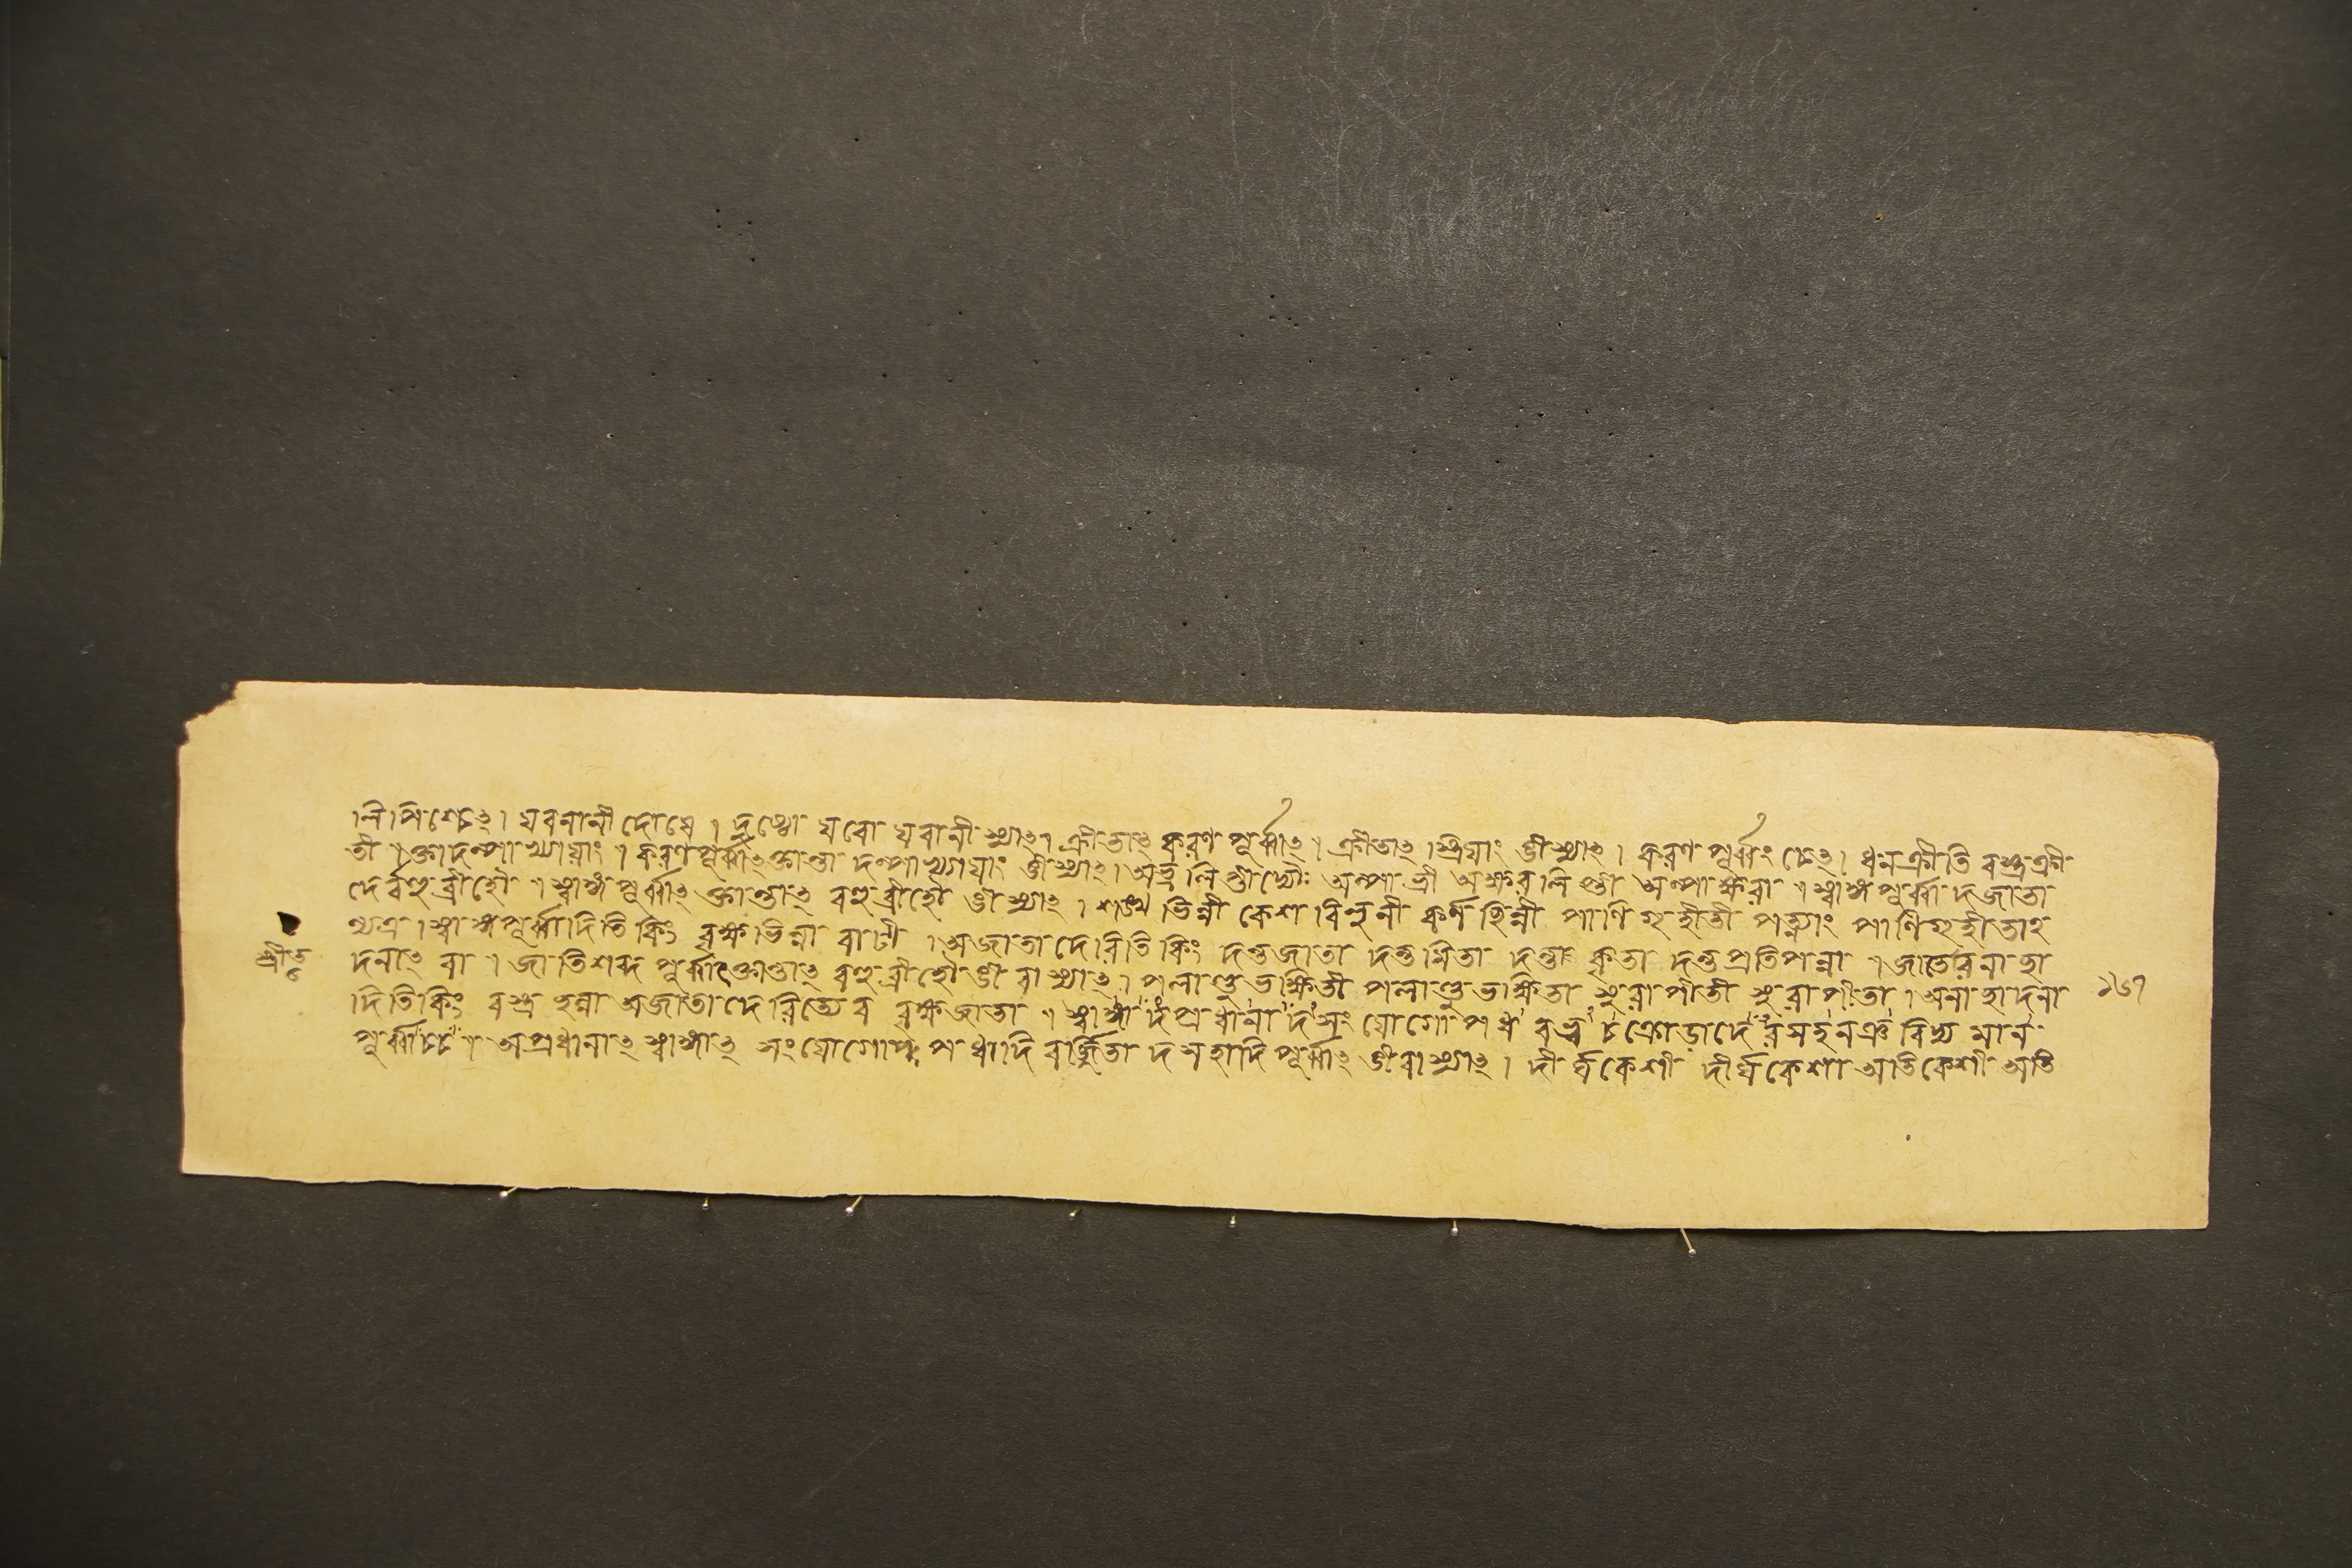 লিপিশ্চেৎ। যবনানী দোষে। দুষ্টো যবো যবানী স্যাৎ। ক্রীতাৎ করণপূর্ব্বাৎ। ক্রীতাৎ স্ত্রিয়াং ঈ স্যাৎ। করণপূর্ব্বং চেৎ। ধনক্রীতি বস্ত্রক্রী
তী। ক্তাদল্পাখ্যায়াং। করণপূর্ব্বাৎ ক্তান্তা দল্পাখ্যায়াং ঈ স্যাৎ। অভ্রলিপ্তী দ্যৌঃ অল্পাভ্রী অক্ষরলিপ্তী অল্পাক্ষরা। স্বাঙ্গপূর্ব্বাদজাতা
দের্বহুব্রীহৌ। স্বাঙ্গপূর্ব্বাৎ ক্তান্তাৎ বহুব্রীহৌ ঈ স্যাৎ। শঙ্খভিন্নী কেশবিলুনী কর্ণছিন্নী পাণিগৃহীতী পত্ন্যাং পাণিগৃহীতাহ
ন্যত্র। স্বাঙ্গপূর্ব্বাদিতি কিং বৃক্ষভিন্না বাটী। অজাতাদেরিতি কিং দন্তজাতা দন্তমিতা দন্তকৃতা দন্তপ্রতিপন্না। জাতেরনাছা
দনাৎ বা। জাতিশব্দপূর্ব্বাৎ ক্তান্তাৎ বহুব্রীহৌ ঈ বা স্যাৎ। পলাণ্ডুভক্ষিতী পলাণ্ডুভক্ষিতা সুরাপীতী সুরাপীতা। অনাছাদনা
দিতি কিং বস্ত্রছন্না অজাতাদেরিত্যেব বৃক্ষজাতা। স্বাঙ্গাদপ্রধানাদসংযোগোপধ বহ্বচক্রোডাদেরসহনঞবিদ্যমান
পূর্ব্বাচ্চ। অপ্রধানাৎ স্বাঙ্গাৎ সংযোগোপধাদিবর্জ্জিতা দসহাদিপূর্ব্বাৎ ঈ বা স্যাৎ। দীর্ঘকেশী দীর্ঘকেশা অতিকেশী অতি
১৬৭